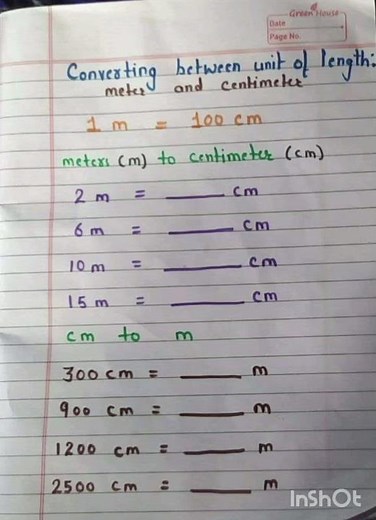 Green House
Date
Page No.
Converting between unit of length:
meter and centimeter
1 m = 100 cm
meters (m) to centimeter (cm)
2 m = ____ cm
6 m = ____ cm
10 m = ____ cm
15 m = ____ cm
cm to m
300 cm = ____ m
900 cm = ____ m
1200 cm = ____ m
2500 cm = ____ m
InShOt